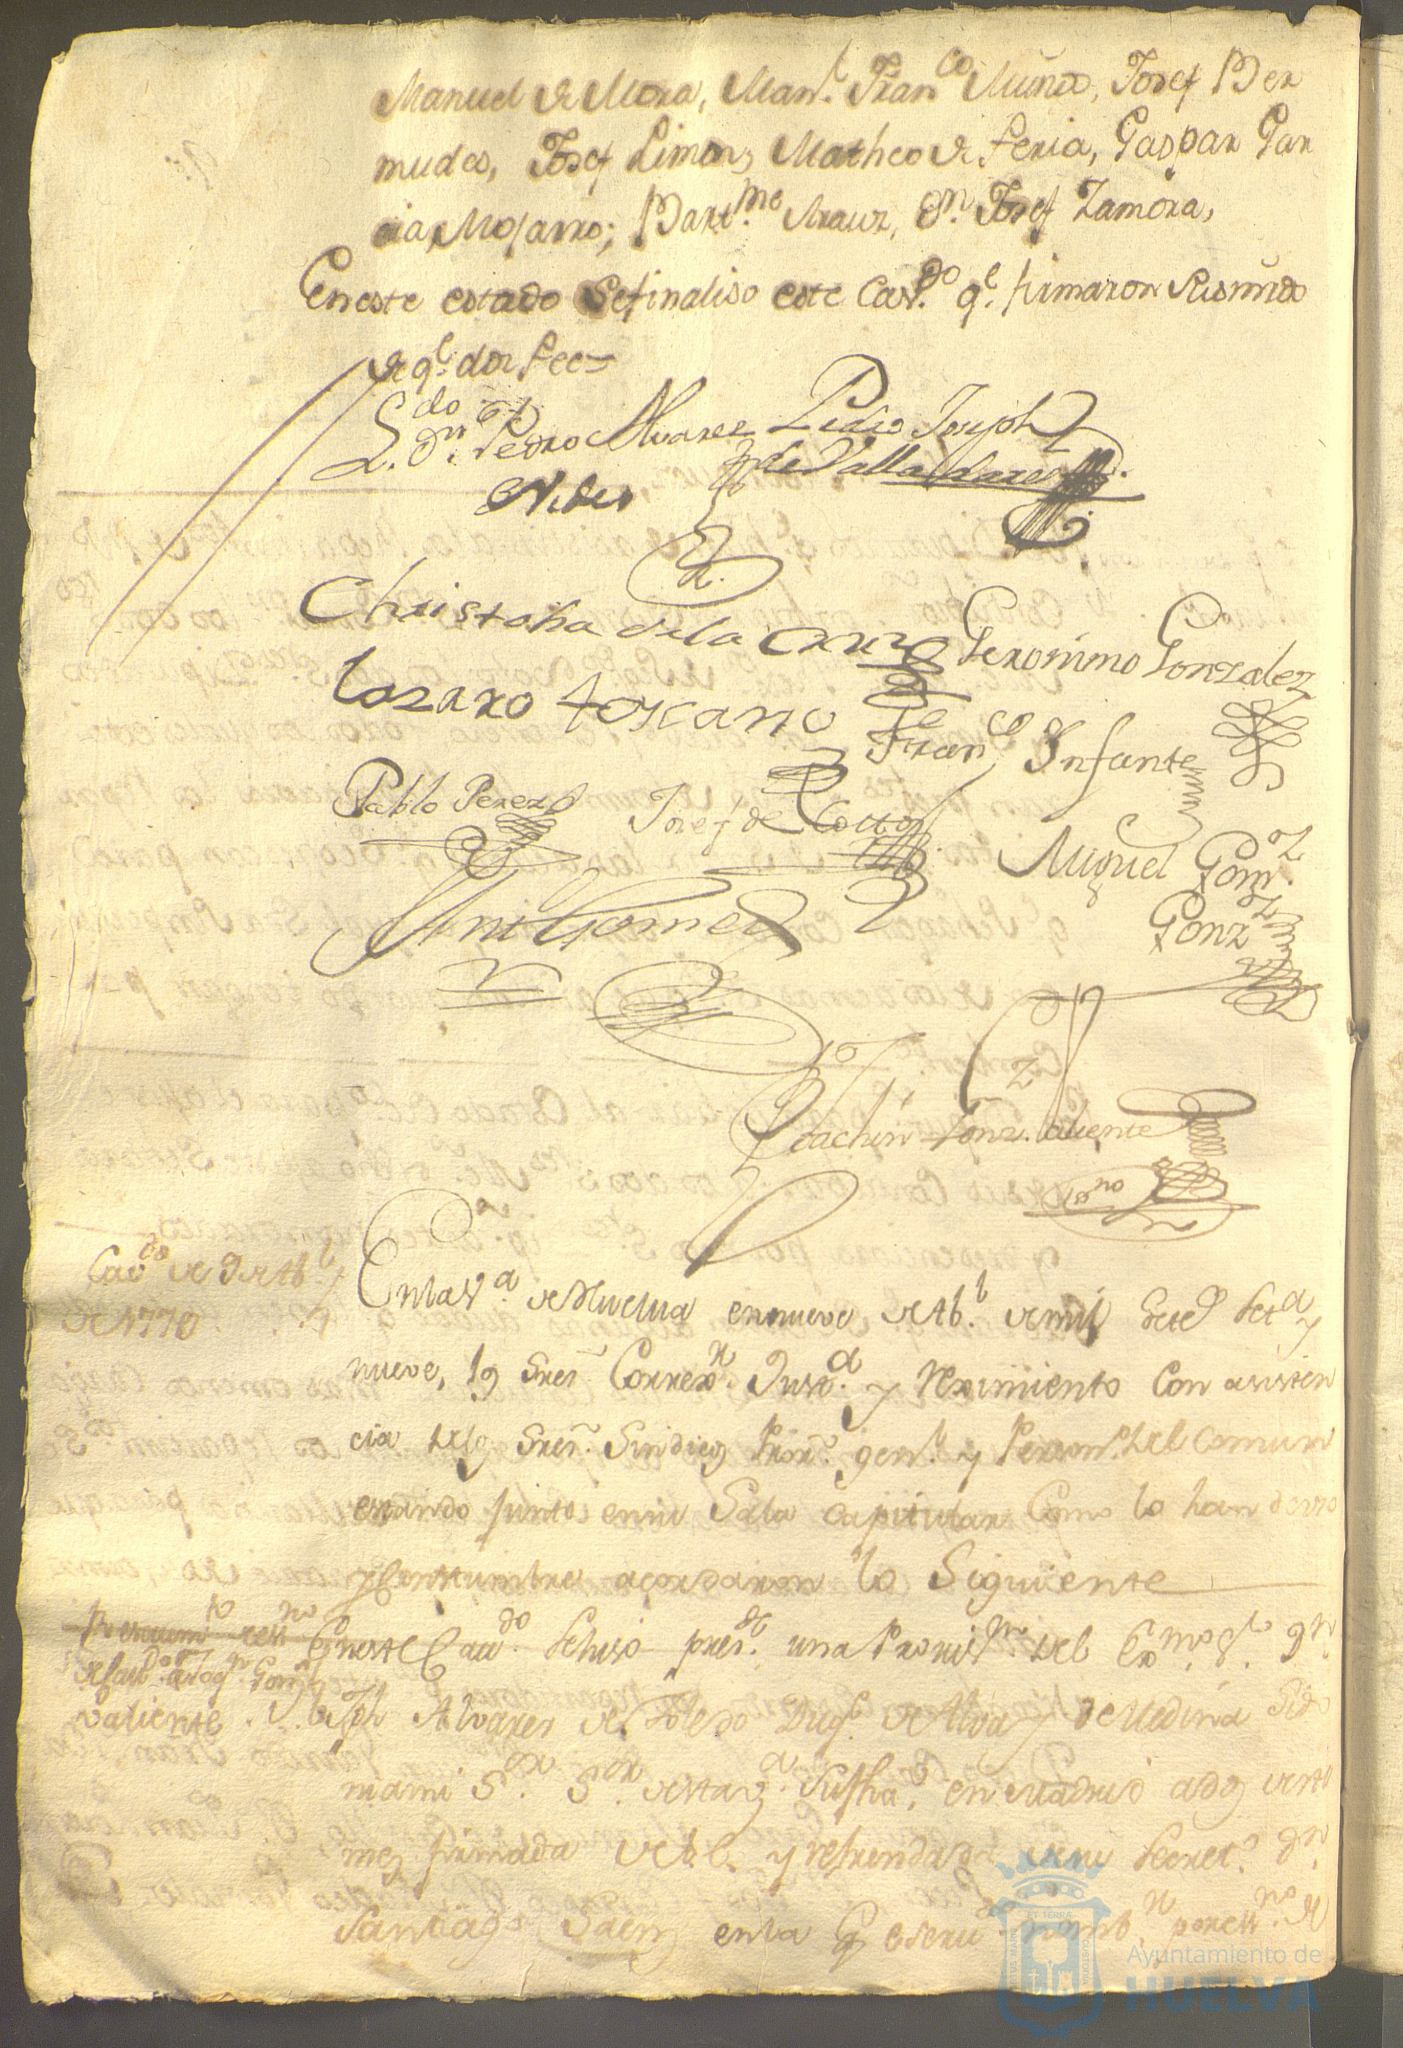 Manuel de Mora, Man.l Fran.co Muños, Josef Ber
mudes, Josef Limon, Matheo de Feria, Gaspar Gar
cia Mojarro; Bart.me Arauz, Dn. Josef Zamora,
En este estado Sefinaliso este Cav.do q.e firmaron
de q.e doi fee
L.do Dn. Pedro Alvarez
Pedro Joseph
de Valladares
Christoba dela Cruz
Geronimo Gonzalez
Lazaro toscano
Fran.co Infante
Pablo Perez
Josef de Cotto
Miguel Gom.z
Gonz.z
Ant Gomez
Joachin Gonz. Valiente
Cav.do de 9 de Ab.l
de 1770
En la V.a de Huelva en nueve de Ab.l de mil Sete.s Set.a y
nueve, los Sres. Correx.r Just.a y Reximiento Con asisten
cia delos Sres. Sindicos Pror. gen.l y Person.o del Comun
estando juntos en su Sala Capitular Como lo han de vso
y Consttumbre acordaron lo Siguiente
En este Cav.do Sehiso pres.te una Provis.n del Ex.mo S.or Dn.
Valiente
Joseph Alvares de Toledo Duq.e de Alva y de Medina Sido
nia mi S.or S.or de esta V.a Su fha. en Madrid a dos de este
mes firmada de S.E. y refrendada de su Secret.o Dn.
Santiago Saenz en la q.e
Ayuntamiento de
HUELVA